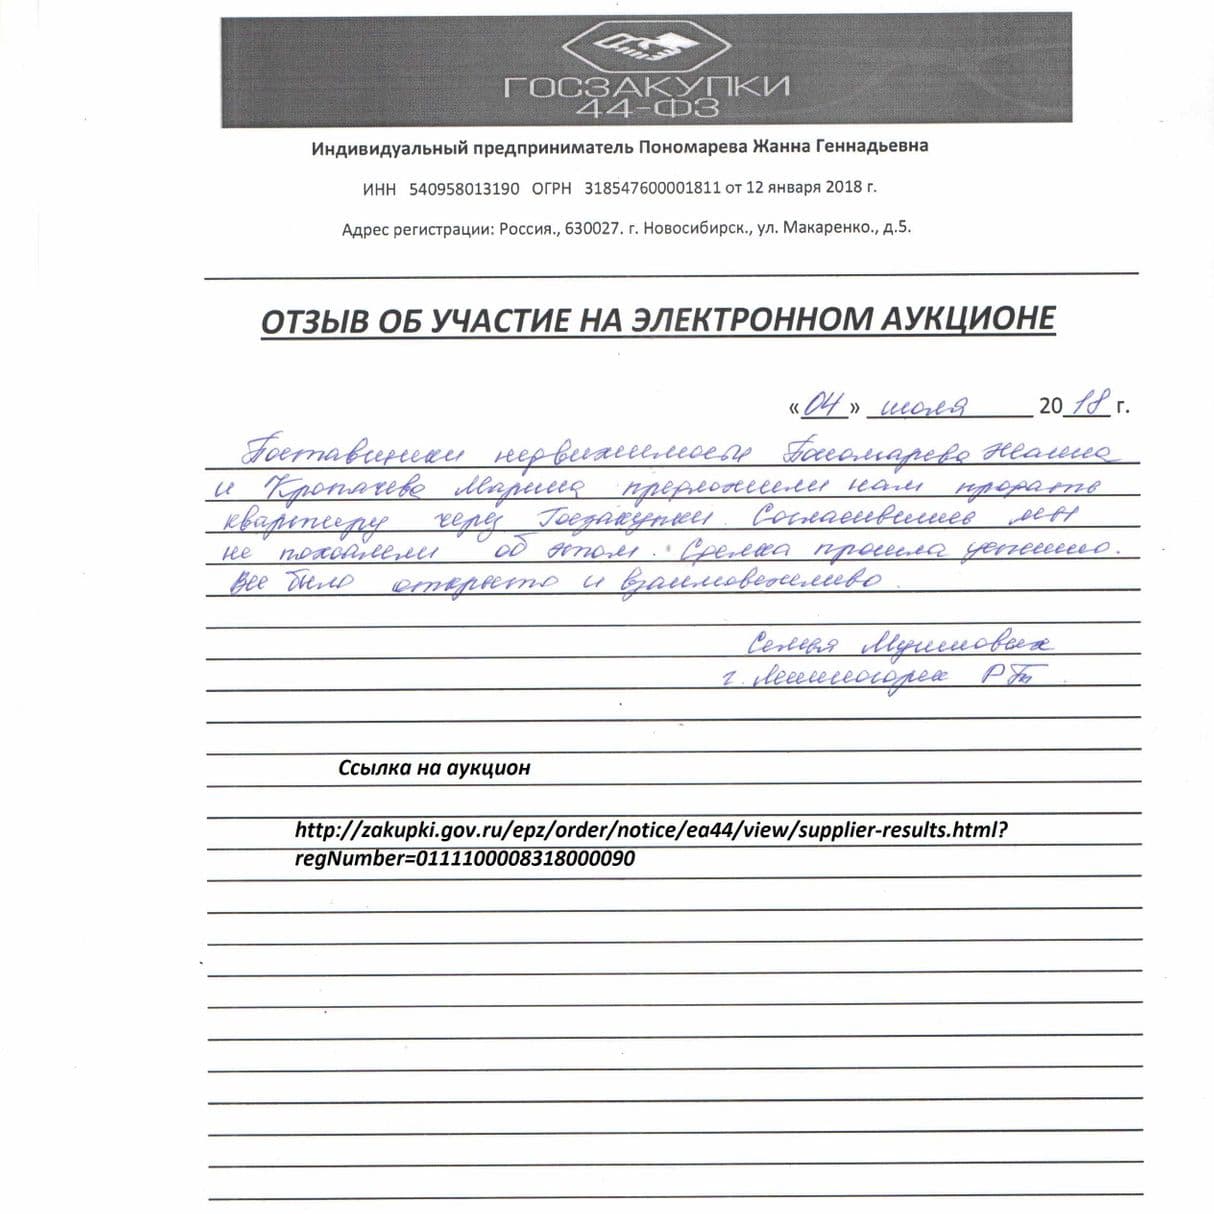 ГОСЗАКУПКИ
44-ФЗ
Индивидуальный предприниматель Пономарева Жанна Геннадьевна
ИНН 540958013190 ОГРН 318547600001811 от 12 января 2018 г.
Адрес регистрации: Россия., 630027. г. Новосибирск., ул. Макаренко., д.5.
ОТЗЫВ ОБ УЧАСТИЕ НА ЭЛЕКТРОННОМ АУКЦИОНЕ
«04» июля 2018 г.
Поставщики недвижимости Пономарева Жанна
и Кропачева Марина предложили нам продать
квартиру через Госзакупки. Согласившись мы
не пожалели об этом. Сделка прошла успешно.
Все было открыто и взаимовежливо.
Семья
г. Лениногорск РТ.
Ссылка на аукцион
http://zakupki.gov.ru/epz/order/notice/ea44/view/supplier-results.html?
regNumber=0111100008318000090